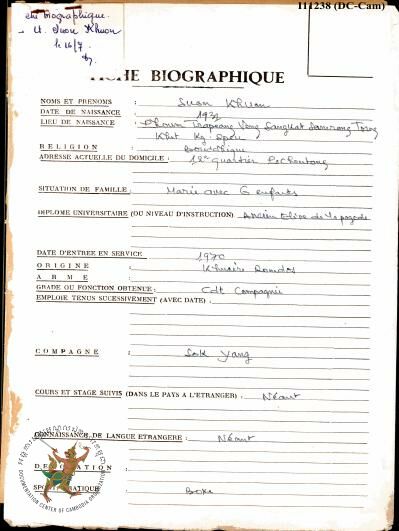 111238 (DC-Cam)
biographique.
FICHE BIOGRAPHIQUE
NOMS ET PRENOMS : Suon Khuon
DATE DE NAISSANCE : 1932
LIEU DE NAISSANCE : Phoum Trapeang Veng Sangkat Samrong Tong
Khet Kg. Speu
RELIGION : Bouddhique
ADRESSE ACTUELLE DU DOMICILE : 12e quartier Pochentong
SITUATION DE FAMILLE : Marié avec 6 enfants
DIPLOME UNIVERSITAIRE (OU NIVEAU D'INSTRUCTION) Ancien Elève de la pagode
DATE D'ENTREE EN SERVICE : 1970
ORIGINE : Khmère Romdos
ARME :
GRADE OU FONCTION OBTENUE : Cdt Compagnie
EMPLOIE TENUS SUCESSIVEMENT (AVEC DATE) :
COMPAGNE : Sok Yang
COURS ET STAGE SUIVIS (DANS LE PAYS A L'ETRANGER) : Néant
CONNAISSANCE DE LANGUE ETRANGERE : Néant
SPORT PRATIQUE : Boxe
DOCUMENTATION CENTER OF CAMBODIA